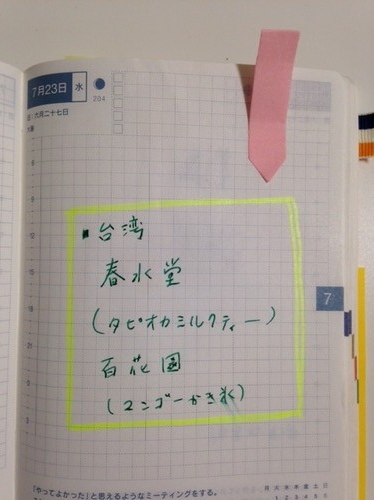 7月23日 水
204
旧:六月二十七日
大暑
9
12
15
18
21
0
3
■台湾
春水堂
(タピオカミルクティー)
百花園
(マンゴーかき氷)
7
「やってよかった」と思えるようなミーティングをする。
月 火 水 木 金 土 日
1 2 3 4 5 6